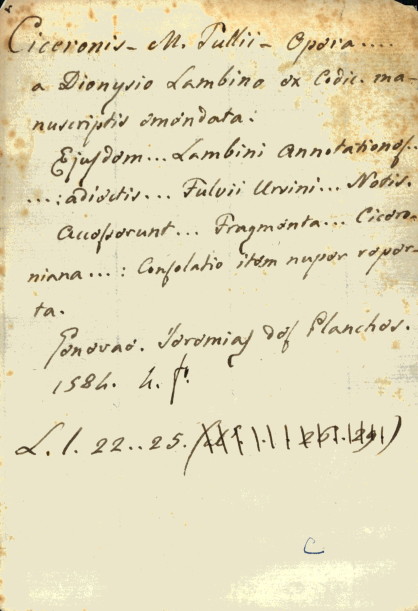 Ciceronis - M. Tullii - Opera ....
a Dionysio Lambino ex Codic. ma-
nuscriptis emendata:
Ejusdem ... Lambini Annotationes..
...: adiectis ... Fulvii Ursini ... Notis.
Accesserunt ... Fragmenta ... Cicero-
niana ...: Consolatio item nuper reper-
ta.
Genevae. Jeremias des Planches.
1584. 4. f.
L. l. 22..25.
C